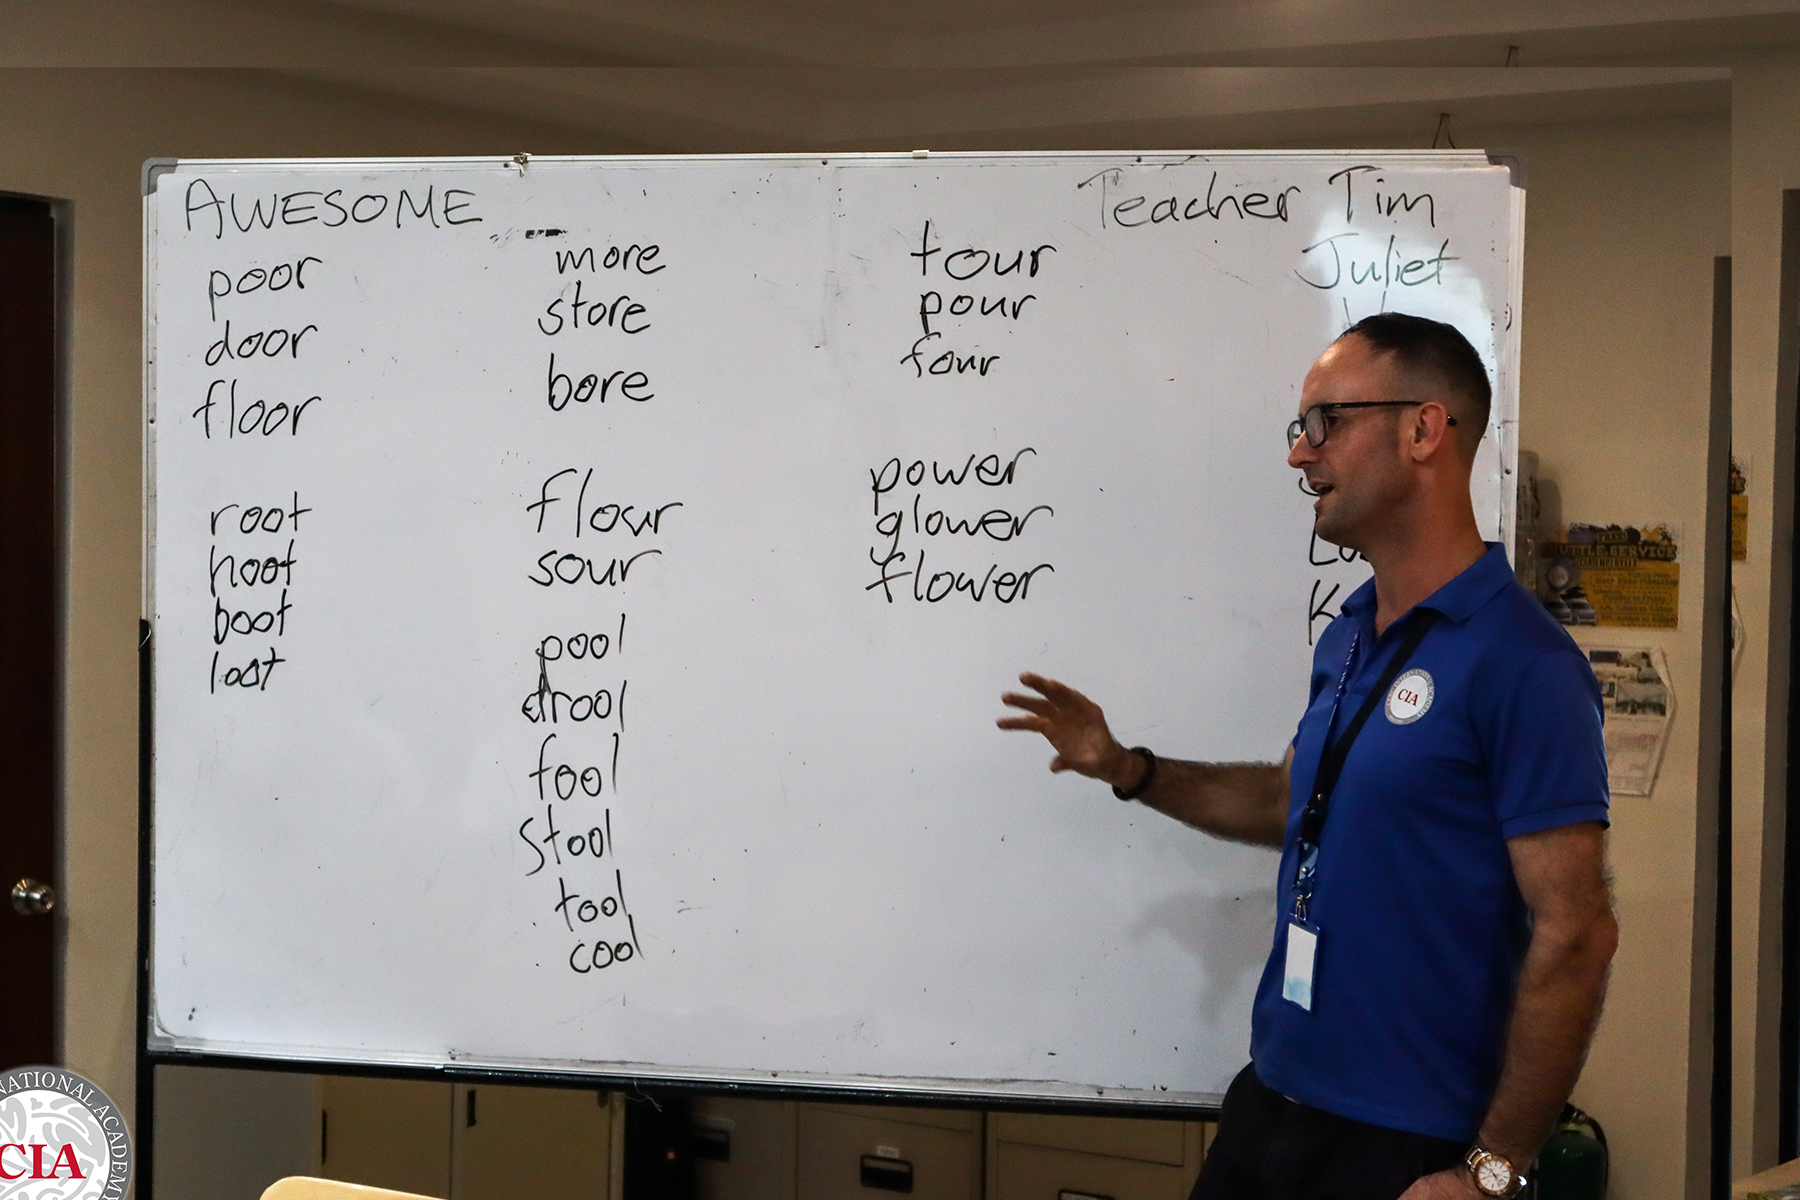 AWESOME
poor
door
floor
root
hoot
boot
loot
more
store
bore
flour
sour
pool
drool
fool
stool
tool
cool
tour
pour
four
power
glower
flower
Teacher Tim
Juliet
CIA
FREE
SHUTTLE SERVICE
NATIONAL ACADEM
CIA